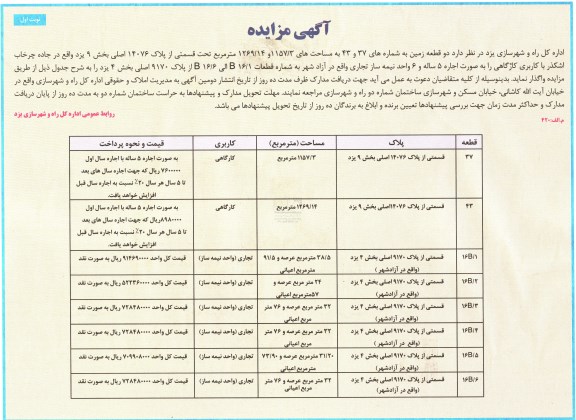 نوبت اول
آگهی مزایده
اداره کل راه و شهرسازی یزد در نظر دارد دو قطعه زمین به شماره های ۳۷ و ۴۳ به مساحت های ۱۱۵۷/۳ و ۱۲۶۹/۱۴ مترمربع تحت قسمتی از پلاک ۱۴۰۷۶ اصلی بخش ۹ یزد واقع در جاده چرخاب
اشکذر با کاربری کارگاهی را به صورت اجاره ۵ ساله و ۶ واحد نیمه ساز تجاری واقع در آزاد شهر به شماره قطعات ۱۶/۱ B الی ۱۶/۶ B از پلاک ۹۱۷۰ اصلی بخش ۴ یزد را به شرح جدول ذیل از طریق
مزایده واگذار نماید. بدینوسیله از کلیه متقاضیان دعوت به عمل می آید جهت دریافت مدارک ظرف مدت ده روز از تاریخ انتشار دومین آگهی به مدیریت املاک و حقوقی اداره کل راه و شهرسازی واقع در
خیابان آیت الله کاشانی، خیابان مسکن و شهرسازی ساختمان شماره دو راه و شهرسازی مراجعه نمایند. مهلت تحویل مدارک و پیشنهادها به حراست ساختمان شماره دو به مدت ده روز از پایان دریافت
مدارک و حداکثر مدت زمان جهت بررسی پیشنهادها تعیین برنده و ابلاغ به برندگان ده روز از تاریخ تحویل پیشنهادها می باشد.
م.الف: ۴۲۰
روابط عمومی اداره کل راه و شهرسازی یزد
قطعه پلاک مساحت (مترمربع) کاربری قیمت و نحوه پرداخت
۳۷ قسمتی از پلاک ۱۴۰۷۶ اصلی بخش ۹ یزد ۱۱۵۷/۳ مترمربع کارگاهی به صورت اجاره ۵ ساله با اجاره سال اول
۷۶۰۰۰۰۰ ریال که جهت اجاره سال های بعد
تا ۵ سال هر سال ۲۰٪ نسبت به اجاره سال قبل
افزایش خواهد یافت.
۴۳ قسمتی از پلاک ۱۴۰۷۶ اصلی بخش ۹ یزد ۱۲۶۹/۱۴ مترمربع کارگاهی به صورت اجاره ۵ ساله با اجاره سال اول
۸۹۸۰۰۰۰ ریال که جهت اجاره سال های بعد
تا ۵ سال هر سال ۲۰٪ نسبت به اجاره سال قبل
افزایش خواهد یافت.
۱۶B/۱ قسمتی از پلاک ۹۱۷۰ اصلی بخش ۴ یزد ۳۸/۵ مترمربع عرصه و ۹۱/۵ تجاری (واحد نیمه ساز) قیمت کل واحد ۹۱۴۶۹۰۰۰۰ ریال به صورت نقد
(واقع در آزادشهر) مترمربع اعیانی
۱۶B/۲ قسمتی از پلاک ۹۱۷۰ اصلی بخش ۴ یزد ۲۴ متر مربع عرصه و تجاری (واحد نیمه ساز) قیمت کل واحد ۵۲۲۳۶۰۰۰۰ ریال به صورت نقد
(واقع در آزادشهر) ۵۷مترمربع اعیانی
۱۶B/۳ قسمتی از پلاک ۹۱۷۰ اصلی بخش ۴ یزد ۳۲ متر مربع عرصه و ۷۶ متر تجاری (واحد نیمه ساز) قیمت کل واحد ۷۲۸۴۸۰۰۰۰ ریال به صورت نقد
(واقع در آزادشهر) مربع اعیانی
۱۶B/۴ قسمتی از پلاک ۹۱۷۰ اصلی بخش ۴ یزد ۳۲ متر مربع عرصه و ۷۶ متر تجاری (واحد نیمه ساز) قیمت کل واحد ۷۲۸۴۸۰۰۰۰ ریال به صورت نقد
(واقع در آزادشهر) مربع اعیانی
۱۶B/۵ قسمتی از پلاک ۹۱۷۰ اصلی بخش ۴ یزد ۳۱/۲۰ مترمربع عرصه و ۷۳/۹۰ تجاری (واحد نیمه ساز) قیمت کل واحد ۷۰۹۹۰۸۰۰۰ ریال به صورت نقد
(واقع در آزادشهر) مترمربع اعیانی
۱۶B/۶ قسمتی از پلاک ۹۱۷۰ اصلی بخش ۴ یزد ۳۲ متر مربع عرصه و ۷۶ متر تجاری (واحد نیمه ساز) قیمت کل واحد ۷۲۸۴۸۰۰۰۰ ریال به صورت نقد
(واقع در آزادشهر) مربع اعیانی